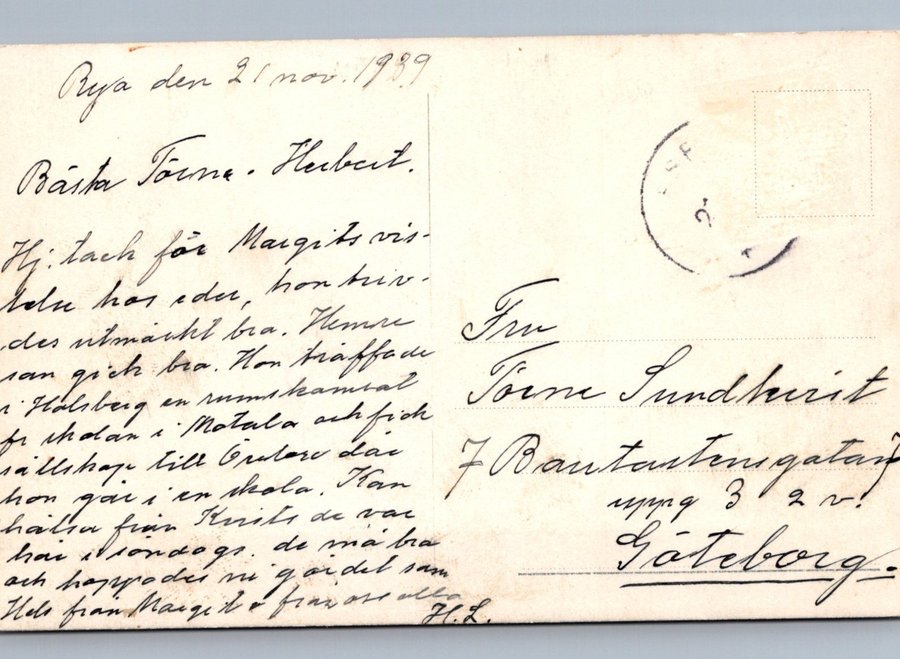 Rya den 21 nov. 1939
Bästa Törne. Herbert.
Hj. tack för Margits vis-
telse hos eder, hon triv-
des utmärkt bra. Hemre
san gick bra. Hon träffade
i Halsberg en rumskamrat
fr skolan i Motala och fick
sällskap till Örebro där
hon går i en skola. Kan
hälsa från Kvists de var
här i söndags. de må bra
och hoppades ni gör det sam
Hels från Margit o från oss alla
H. L.
Fru
Törne Sundkvist
7 Bautastensgatan 7
uppg 3 2 v.
Göteborg.